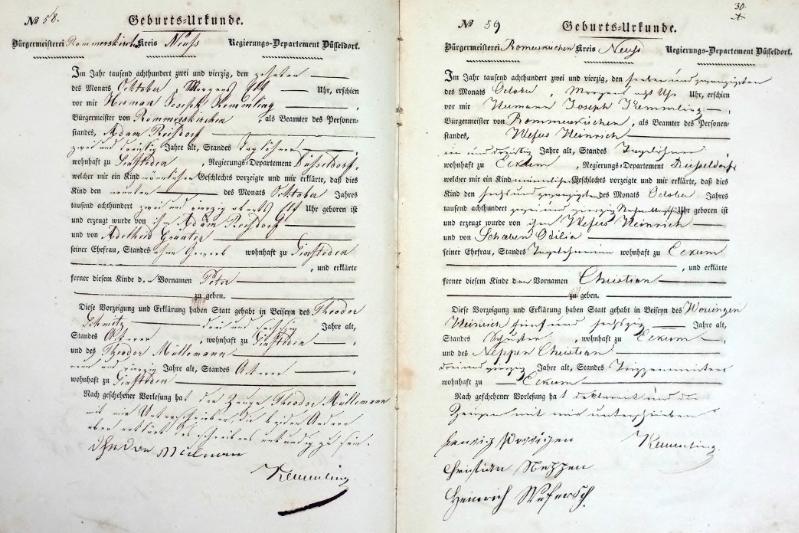 No 58.
Geburts-Urkunde.
Bürgermeisterei Rommerskirchen Kreis Neuss Regierungs-Departement Düsseldorf.
Im Jahr tausend achthundert zwei und vierzig, den zehnten
des Monats Oktober Morgens Elf Uhr, erschien
vor mir Herman Joseph Kemmling
Bürgermeister von Rommerskirchen, als Beamter des Personen-
standes, Adam Reisdorf
zwei und dreißig Jahre alt, Standes Taglöhner
wohnhaft zu Sinsteden, Regierungs-Departement Düsseldorf,
welcher mir ein Kind männlichen Geschlechts vorzeigte und mir erklärte, daß dies
Kind den neunten des Monats Oktober Jahrs
tausend achthundert zwei und vierzig abends Elf Uhr geboren ist
und erzeugt wurde von ihm Adam Reisdorf
und von Adelheid
seiner Ehefrau, Standes ohne Gewerb wohnhaft zu Sinsteden
, und erklärte
ferner diesem Kinde den Vornamen Peter
zu geben.
Diese Vorzeigung und Erklärung haben Statt gehabt in Beiseyn des Theodor
Schmitz Jahre alt,
Standes Ackerer, wohnhaft zu Sinsteden
und des Theodor Müllemann
Jahre alt, Standes Ackerer
wohnhaft zu Sinsteden
Nach geschehener Vorlesung hat der Zeuge Theodor Müllemann
mit mir unterschrieben
Kemmling
30.
No 59
Geburts-Urkunde.
Bürgermeisterei Rommerskirchen Kreis Neuss Regierungs-Departement Düsseldorf.
Im Jahr tausend achthundert zwei und vierzig, den sieben und zwanzigsten
des Monats October, Morgens acht Uhr, erschien
vor mir Hermann Joseph Kemmling,
Bürgermeister von Rommerskirchen, als Beamter des Personen-
standes, Wefers Heinrich
ein und dreißig Jahre alt, Standes Tagelöhner
wohnhaft zu Eckum, Regierungs-Departement Düsseldorf
welcher mir ein Kind männlichen Geschlechts vorzeigte und mir erklärte, daß dies
Kind den sechs und zwanzigsten des Monats October Jahrs
tausend achthundert zwei und vierzig Uhr geboren ist
und erzeugt wurde von ihm Wefers Heinrich
und von Schaben Odilia
seiner Ehefrau, Standes Tagelöhnerin wohnhaft zu Eckum
, und erklärte
ferner diesem Kinde den Vornamen Christian
zu geben.
Diese Vorzeigung und Erklärung haben Statt gehabt in Beiseyn des
Heinrich fünf und sechzig Jahre alt,
Standes, wohnhaft zu Eckum
und des Neppen Christian
Jahre alt, Standes
wohnhaft zu Eckum
Nach geschehener Vorlesung hat Deklarant und die
Zeugen mit mir unterschrieben
Kemmling
Christian Neppen
Heinrich